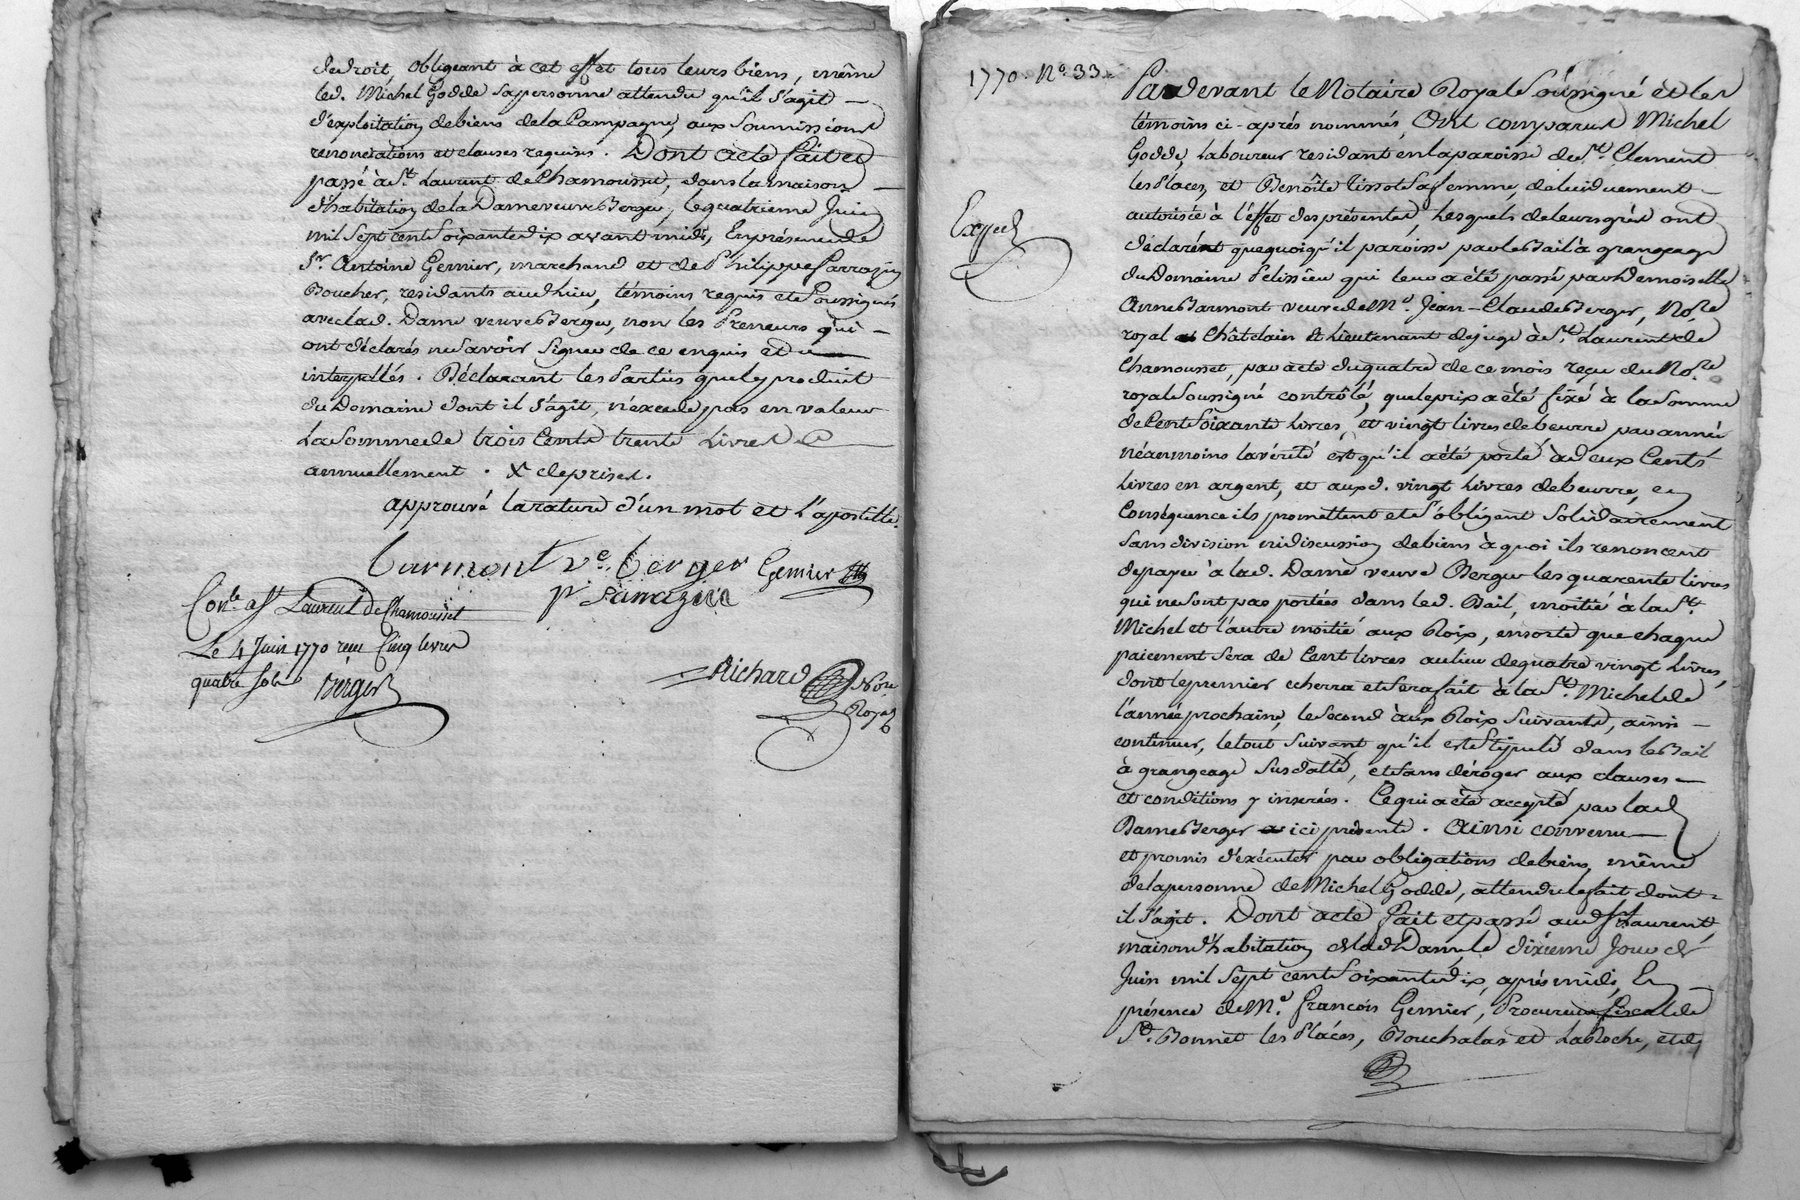 de droit, obligeant à cet effet tous leurs biens, même
led. Michel Godde sa personne attendu qu'il s'agit
d'exploitation de biens de la Campagne, aux soumissions
rénonciations et clauses requises. Dont acte fait et
passé à St. Laurent de Chamousset, dans la maison
d'habitation de la Dame veuve Berger, le quatrieme Juin
mil sept cent soixante dix avant midi, En présence de
Sr. Antoine Gernier, marchand et de Philippe Sarrazin
Boucher, residants aud. lieu, témoins requis et soussignés
avec lad. Dame veuve Berger, non les Preneurs qui
ont déclarés ne savoir signer de ce enquis et
interpellés. Déclarant les Parties que le produit
du Domaine dont il s'agit, n'excede pas en valeur
La somme de trois Cents trente Livres
annuellement. X de prises.
approuvé la rature d'un mot et l'apostille.
Burmont ve. berger Gernier
pr Sarrazin
Con.le a St Laurent De Chamousset
Le 4 Juin 1770 reçu Cinq livres
quatre sols Berger
Richard Nore
Royal
1770. No. 33.
Expeed
Pardevant le Notaire Royal Soussigné et les
témoins ci-aprés nommés, Ont comparus Michel
Godde, Laboureur residant en la paroisse de St. Clement
les Places, et Benoîte Tissot sa femme, de lui duement
autorisée à l'effet des présentes, Lesquels de leurs grés ont
déclarént que quoiqu'il paroisse par le Bail à grangeage
du Domaine Pelissieu qui leur a été passé par Demoiselle
Anne Barmont veuve de Me. Jean-Claude Berger, No.re
royal et Châtelain et Lieutenant de juge à St. Laurent de
Chamousset, par acte du quatre de ce mois reçu du No.re
royal Soussigné contrôlé, que le prix a été fixé à la Somme
de Cent Soixante livres, et vingt livres de beurre par année
néanmoins la vérité est qu'il a été porté à deux Cents
livres en argent, et auxd. vingt Livres de beurre, en
Conséquence ils promettent et s'obligent solidairement
sans division ni discussion de biens à quoi ils renoncent
de payer à lad. Dame veuve Berger les quarente livres
qui ne sont pas portées dans led. Bail, moitié à la St.
Michel et l'autre moitié aux Roix, ensorte que chaque
paiement sera de Cent livres au lieu de quatre vingt Livres,
dont le premier echerra et sera fait à la St. Michel de
l'année prochaine, le second aux Roix suivants, ainsi
continuer, le tout suivant qu'il est stipulé dans le Bail
à grangeage susdatté, et sans déroger aux clauses
et conditions y inserées. Ce qui a été accepté par lad.
Dame Berger ici présente. Ainsi convenu
et promis d'exécuter par obligations de biens, même
de la personne de Michel Godde, attendu le fait dont
il s'agit. Dont acte Fait et passé aud. St Laurent,
maison d'habitation de lad. Dame, le dixieme Jour de
Juin mil sept cent soixante dix, aprés midi, En
présence de Me. François Gernier, Procureur fiscal de
St. Bonnet les Places, Bouchalas et LaRoche, et de